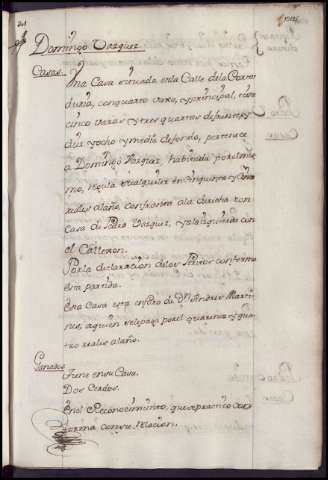 201
Domingo Vazquez
Casas.
Una Casa situada en la Calle de la Corre
duria, con quarto vaxo, y principal, tiene
cinco varas y tres quartas de frente, y
diez y ocho y media de fondo, pertenece
a Domingo Vazquez, habitada por el mis
mo, regula su alquiler en cinquenta y
reales al año, confronta a la derecha con
Casa de Pedro Vazquez, y a la izquierda con
el Callexon.
Por la declaracion de los Peritos conforma
esta partida.
Esta Casa esta en foro de Dn. Andres Marti
nez, a quien se le paga por el quarenta y qua
tro reales al año.
Ganados
Tiene en su Casa.
Dos Cerdos.
En el Reconocimiento, que se practicó con
forma con su Relacion.